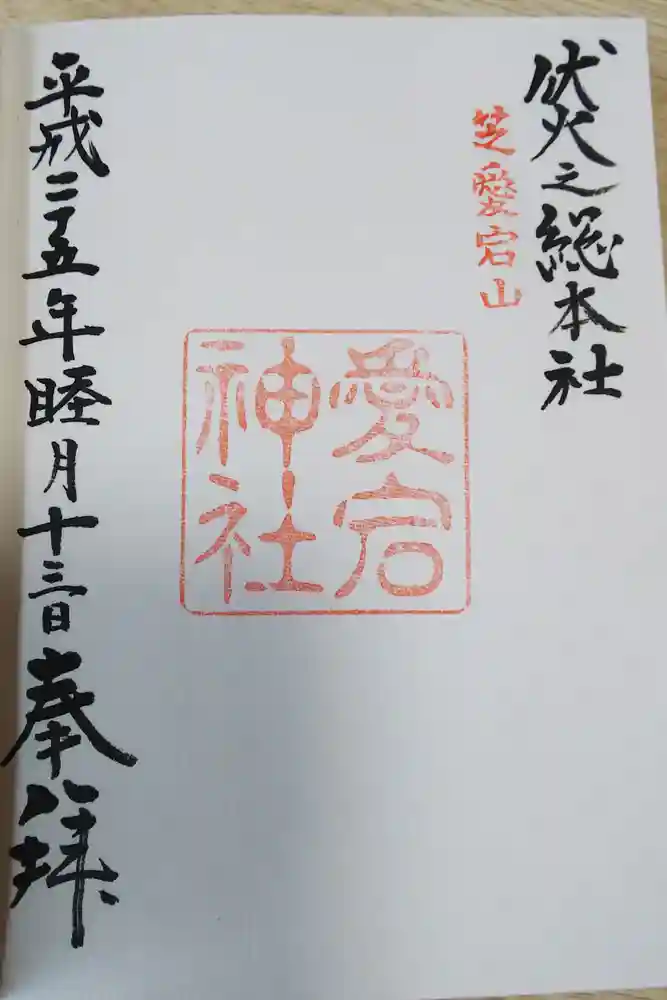 伏火之総本社
芝愛宕山
愛宕
神社
平成二十五年睦月十三日奉拝